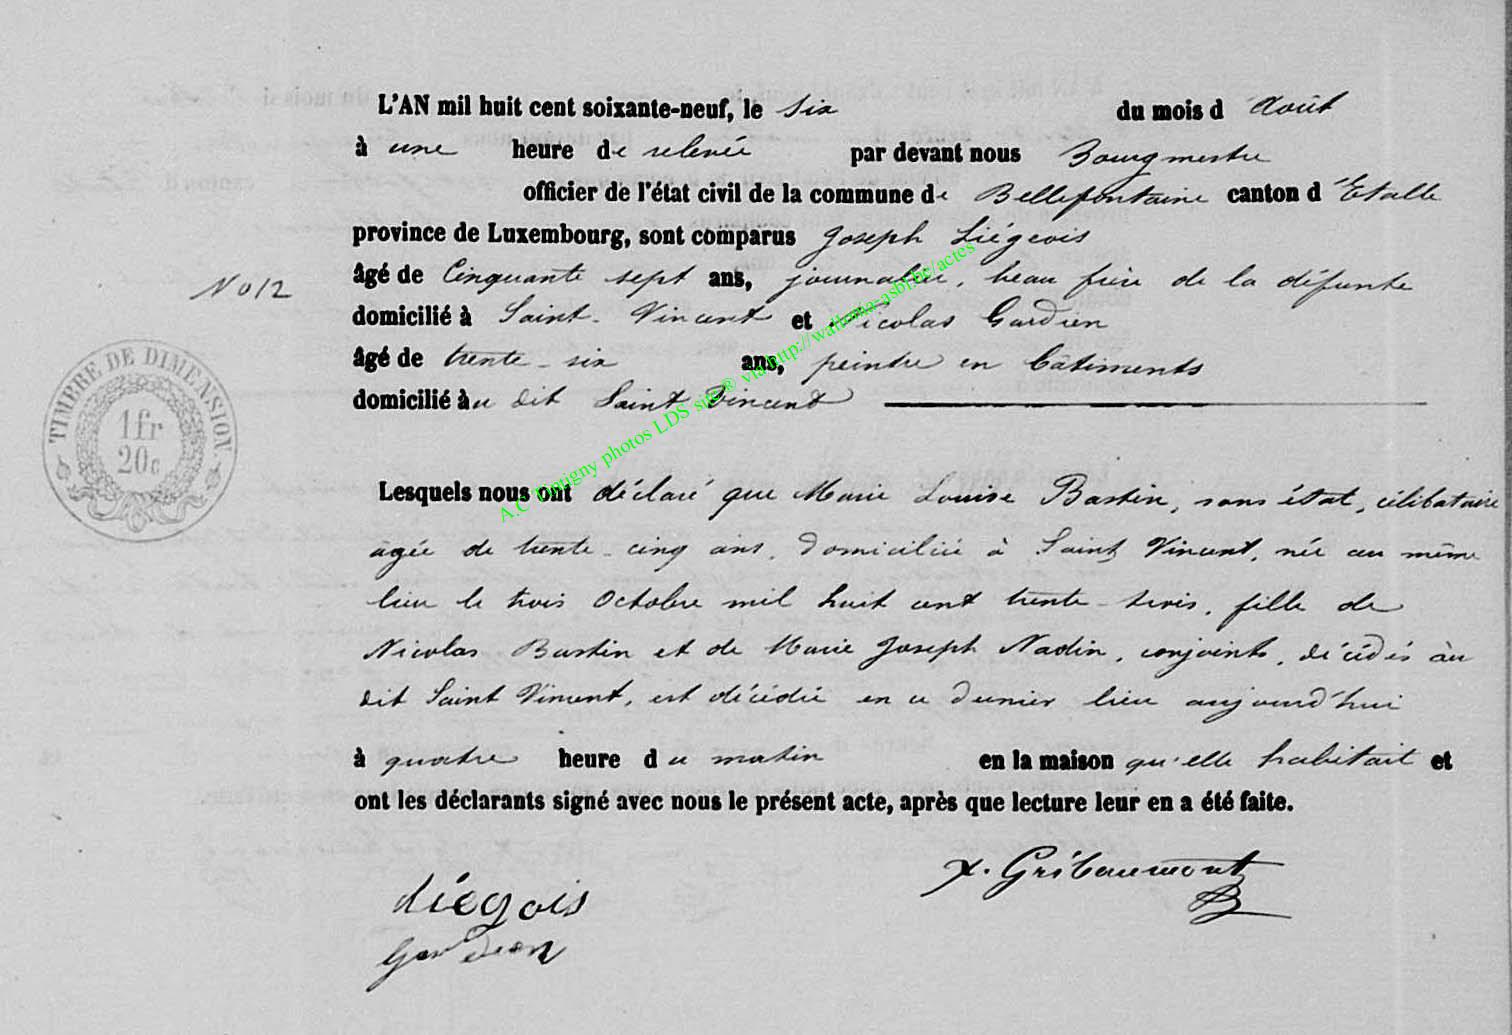 L'AN mil huit cent soixante-neuf, le six du mois d'Août
à une heure de relevée par devant nous Bourgmestre
officier de l'état civil de la commune de Bellefontaine canton d'Etalle
province de Luxembourg, sont comparus Joseph Liégeois
âgé de Cinquante sept ans, journalier, beau frère de la défunte
No 12
domicilié à Saint-Vincent et Nicolas Gardien
âgé de trente-six ans, peintre en bâtiments
domicilié àu dit Saint Vincent
TIMBRE DE DIMENSION
1fr
20c
A.C Tintigny photos LDS site® via http://wallonia-asbl.be/actes
Lesquels nous ont déclaré que Marie Louise Bastin, sans état, célibataire
agée de trente-cinq ans, domiciliée à Saint Vincent, née au même
lieu le trois Octobre mil huit cent trente-trois, fille de
Nicolas Bastin et de Marie Joseph Nadin, conjoints, décédés àu
dit Saint Vincent, est décédée en ce dernier lieu aujourd'hui
à quatre heure du matin en la maison qu'elle habitait et
ont les déclarants signé avec nous le présent acte, après que lecture leur en a été faite.
x. Gribaumont
Liégois
Gardien